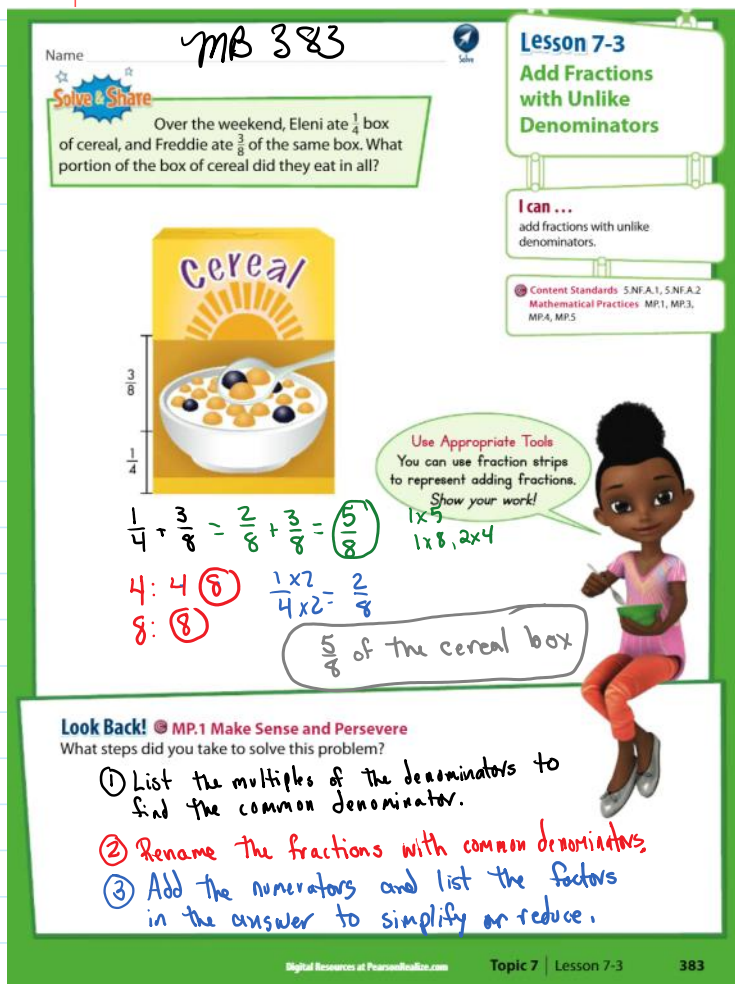 Name MB 383
Solve
Lesson 7-3
Add Fractions
with Unlike
Denominators
Solve & Share
Over the weekend, Eleni ate 1/4 box
of cereal, and Freddie ate 3/8 of the same box. What
portion of the box of cereal did they eat in all?
I can ...
add fractions with unlike
denominators.
Content Standards 5.NF.A.1, 5.NF.A.2
Mathematical Practices MP.1, MP.3,
MP.4, MP.5
Cereal
3/8
1/4
Use Appropriate Tools
You can use fraction strips
to represent adding fractions.
Show your work!
1/4 + 3/8 = 2/8 + 3/8 = 5/8
1x5
1x8, 2x4
4: 4 8
8: 8
1x2/4x2 = 2/8
5/8 of the cereal box
Look Back! MP.1 Make Sense and Persevere
What steps did you take to solve this problem?
① List the multiples of the denominators to
find the common denominator.
② Rename the fractions with common denominators.
③ Add the numerators and list the factors
in the answer to simplify or reduce.
Digital Resources at PearsonRealize.com
Topic 7 | Lesson 7-3 383